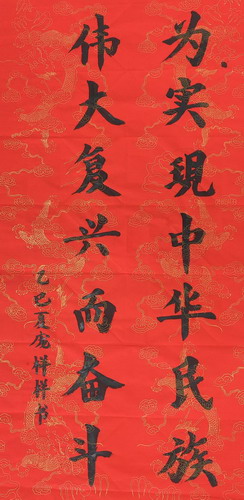 为实現中华民族
伟大复兴而奋斗
乙巳夏庞样样书